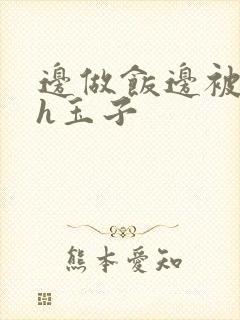 邊做飯邊被
h玉子
熊本愛知